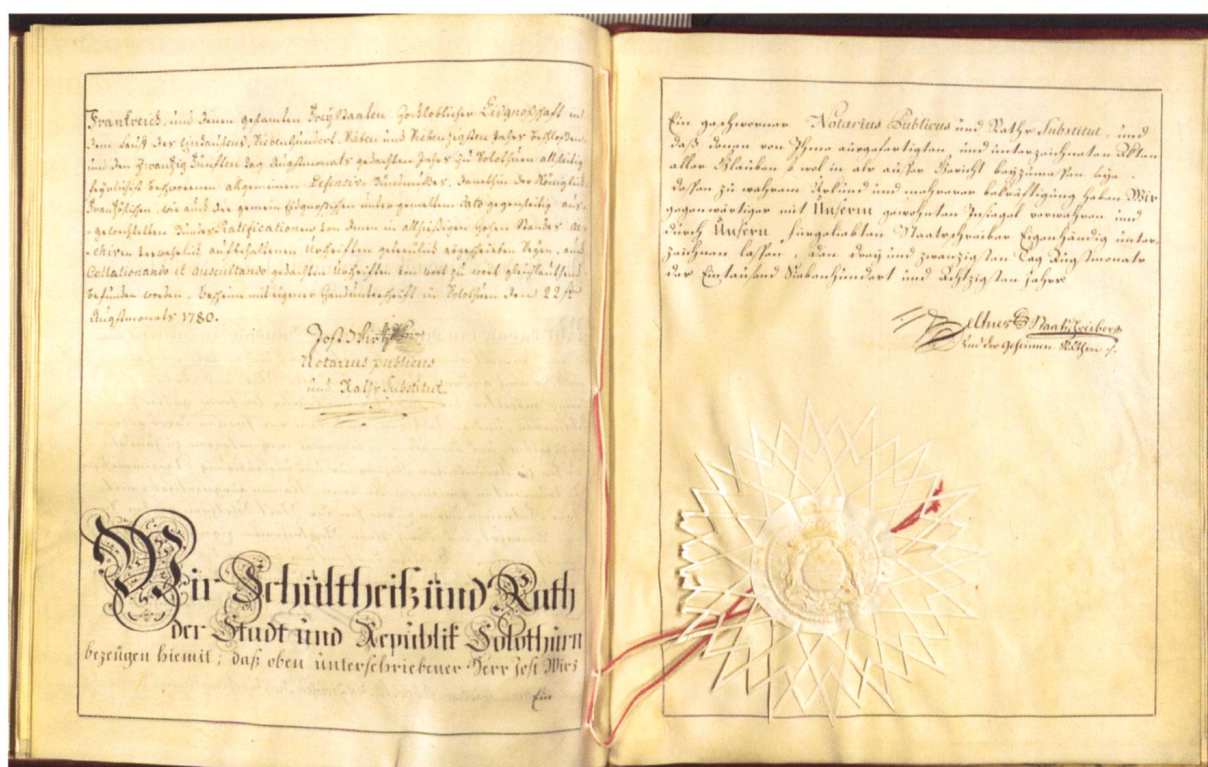 Franckreich, und denen gesamten Freystaaten Hochloblicher Eidgnoßschaft in
dem Lauf des Eintausend, Siebenhundert, Sieben und Siebenzigsten Jahrs beschloßenen
und den Zwanzig fünften Tag Augstmonats gedachten Jahrs zu Solothurn allseitig
feyrlichst beschwornen allgemeinen Defensiv Bündnußes, darnethin der Königlich
Französischen, wie auch der gemein Eidgnoßischen unter gemeltem dato gegenseitig aus-
gewechselten Bundes Ratificationen von denen in allhießigen Hohen Standes Ar-
chiven verwahrlich aufbehaltenen Urschriften getreülich abgeschrieben seyen, und
Collationando et Auscultando gedachten Urschriften von wort zu wort gleichlauttend
befunden worden. Bescheine mit eigener Handunterschrift in Solothurn den 22sten
Augstmonats 1780.
Jost Wirtz
Notarius publicus
und Raths Substitut
Wir Schültheiß ünd Rath
der Stadt und Republik Solothürn
bezeügen hiemit; daß oben ünterschriebener Herr Jost Wirz
Ein
Ein geschworner Notarius Publicus und Raths Substitut, und
daß denen von Ihme ausgefertigten und unterzeichneten Akten
aller Glauben so wol in als ausser Gericht beyzumessen seye.
dessen zu wahrem Urkund und mehrerer bekräftigung haben Wir
gegenwärtiges mit Unserm gewohnten Insigel verwahren und
durch Unsern fürgeliebten Staatschreiber Eigenhändig unter-
zeichnen lassen, den drey und zwanzigsten Tag Augstmonats
der Eintausend Siebenhundert und Achtzigsten Jahrs.
Zeltner Staatschreiber
und des Geheimen Rathes